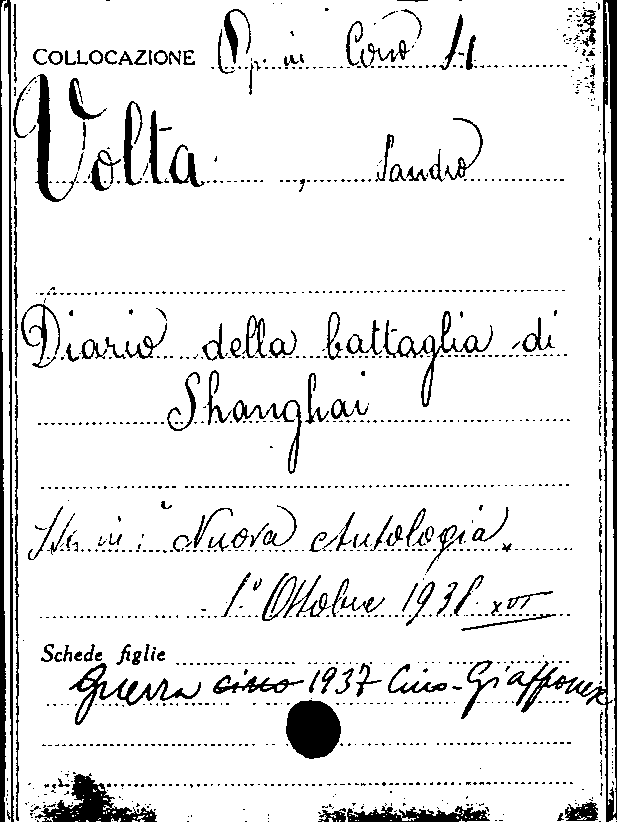 COLLOCAZIONE Op. in Corso H
Volta , Sandro
Diario della battaglia di
Shanghai
in: "Nuova Antologia"
1° Ottobre 1938 XVI
Schede figlie
Guerra cino 1937 Cino-Giapponese